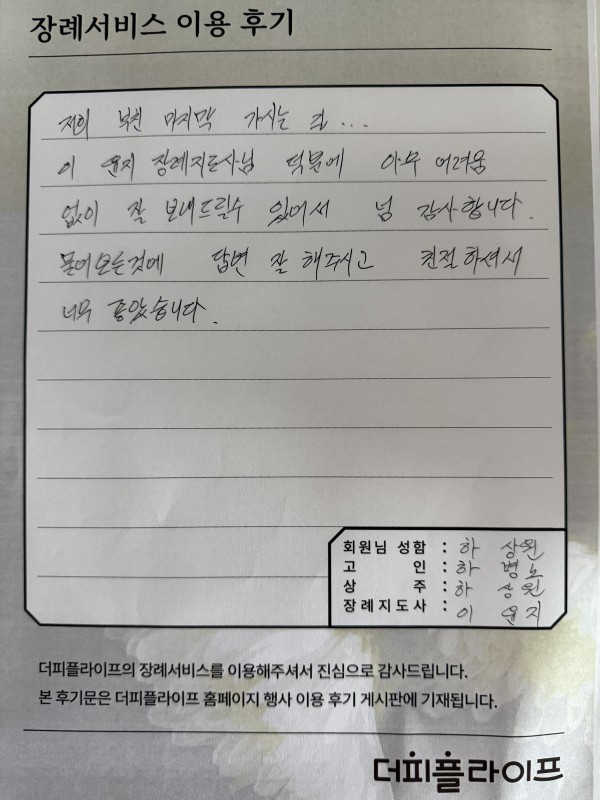 장례서비스 이용 후기
저희 부친 마지막 가시는 길...
이 윤지 장례지도사님 덕분에 아무 어려움
없이 잘 보내드릴수 있어서 넘 감사합니다.
물어보는것에 답변 잘 해주시고 친절하셔서
너무 좋았습니다.
회원님 성함 : 하 상원
고 인 : 하 병노
상 주 : 하 상원
장례지도사 : 이 윤지
더피플라이프의 장례서비스를 이용해주셔서 진심으로 감사드립니다.
본 후기문은 더피플라이프 홈페이지 행사 이용 후기 게시판에 기재됩니다.
더피플라이프